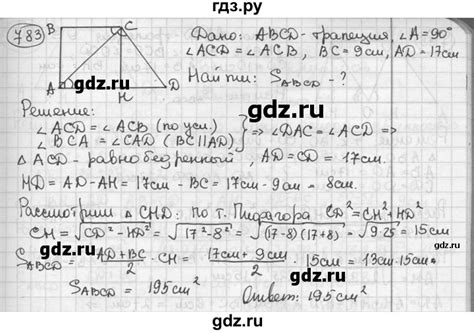 гдз.ру
783
B C
A H D
Дано: ABCD - трапеция, ∠A=90°
∠ACD = ∠ACB, BC = 9см, AD = 17см
Найти: S_ABCD - ?
Решение:
∠ACD = ∠ACB (по усл.)
∠BCA = ∠CAD (BC ∥ AD) } => ∠DAC = ∠ACD =>
Δ ACD - равнобедренный, AD = CD = 17см.
HD = AD - AH = 17см - BC = 17см - 9см = 8см.
Рассмотрим Δ CHD: по т. Пифагора CD² = CH² + HD²
CH = √CD² - HD² = √17² - 8² = √(17-8)(17+8) = √9·25 = 15см
S_ABCD = AD+BC/2 · CH = 17см + 9см/2 · 15см = 13см·15см=
S_ABCD = 195см² Ответ: 195см²
gdz.ru
gdz.ru
gdz.ru
gdz.ru
gdz.ru
gdz.ru
gdz.ru
gdz.ru